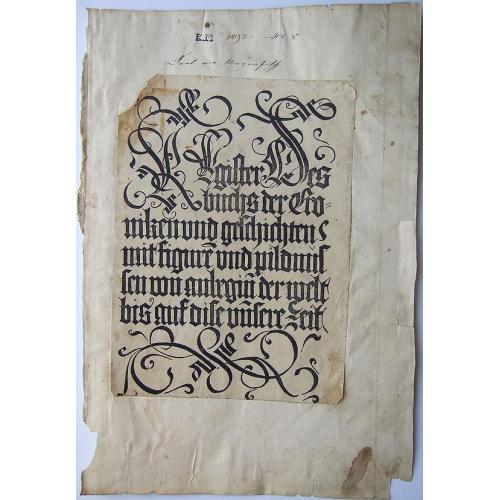 K.H 1493.
Register Des
buchs der Cro-
niken und geschichten
mit figurē und pildnüs
sen von anbegiñ der welt
bis auf dise unsere Zeit